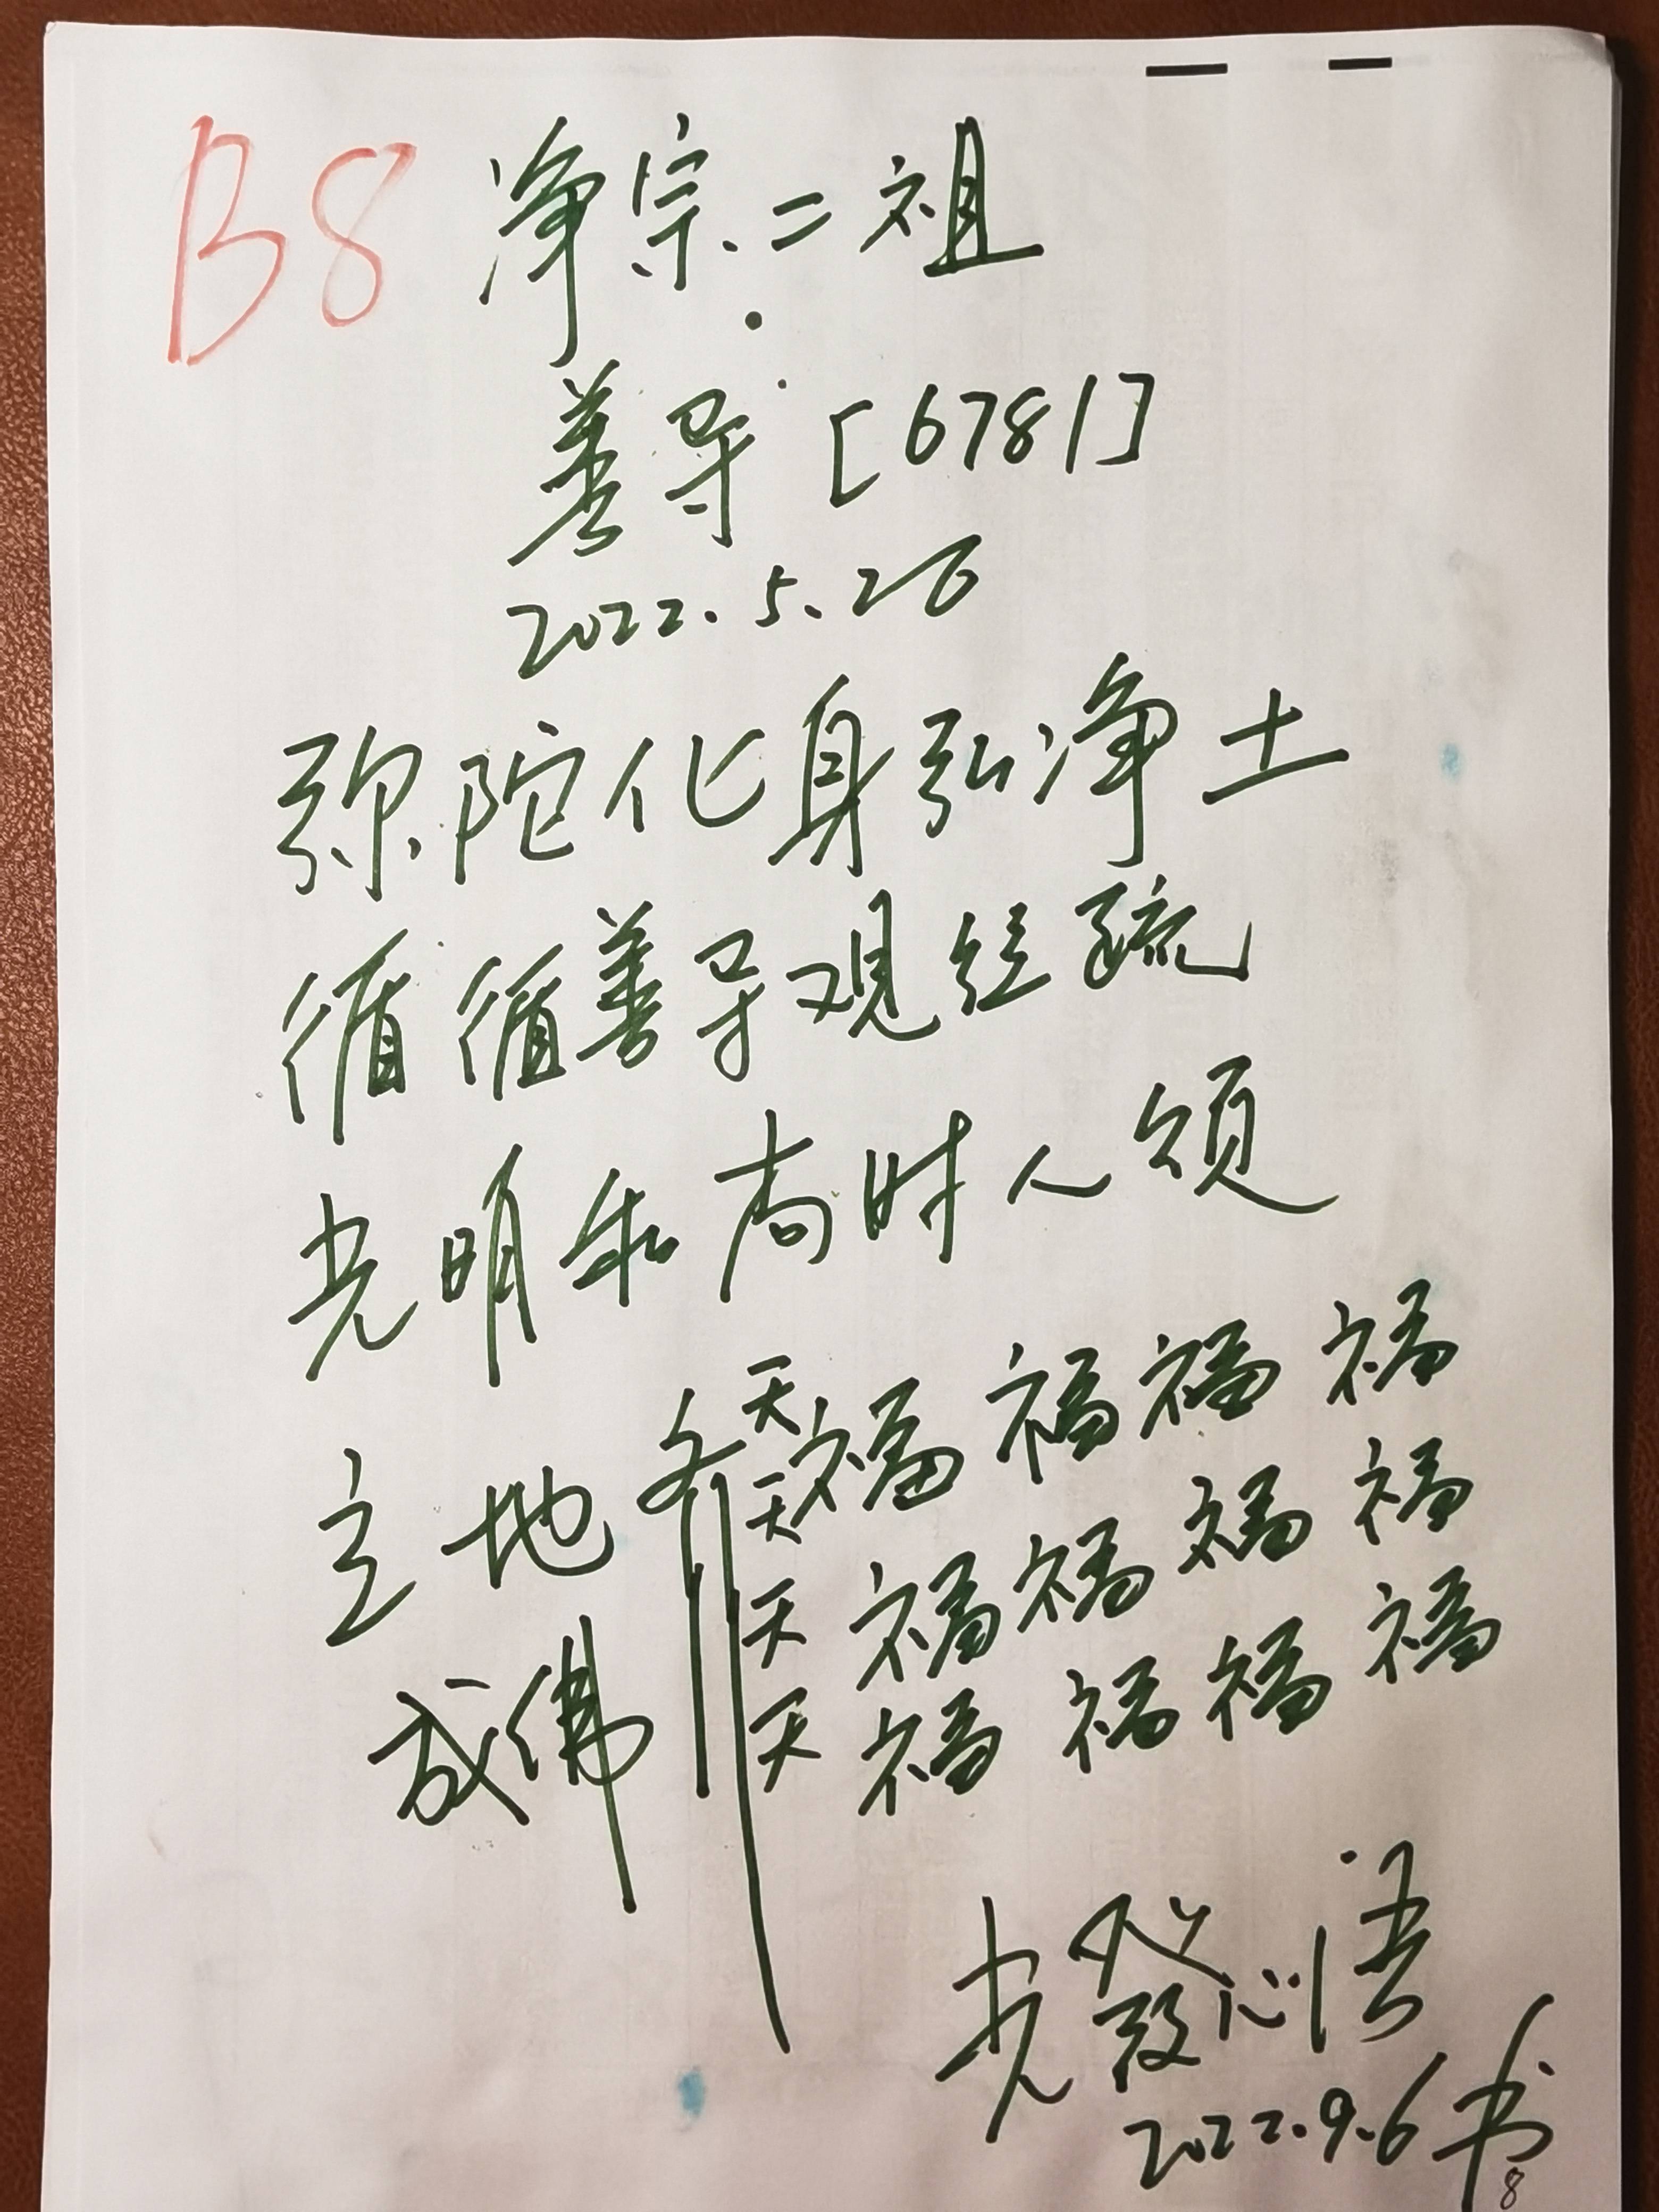 B8 净宗二祖
善导[6781]
2022.5.26
弥陀化身弘净土
循循善导观经疏
光明和尚时人颂
立地
成佛
天天天天
福福福福
福福福福
福福福福
光發心语
2022.9.6书
8